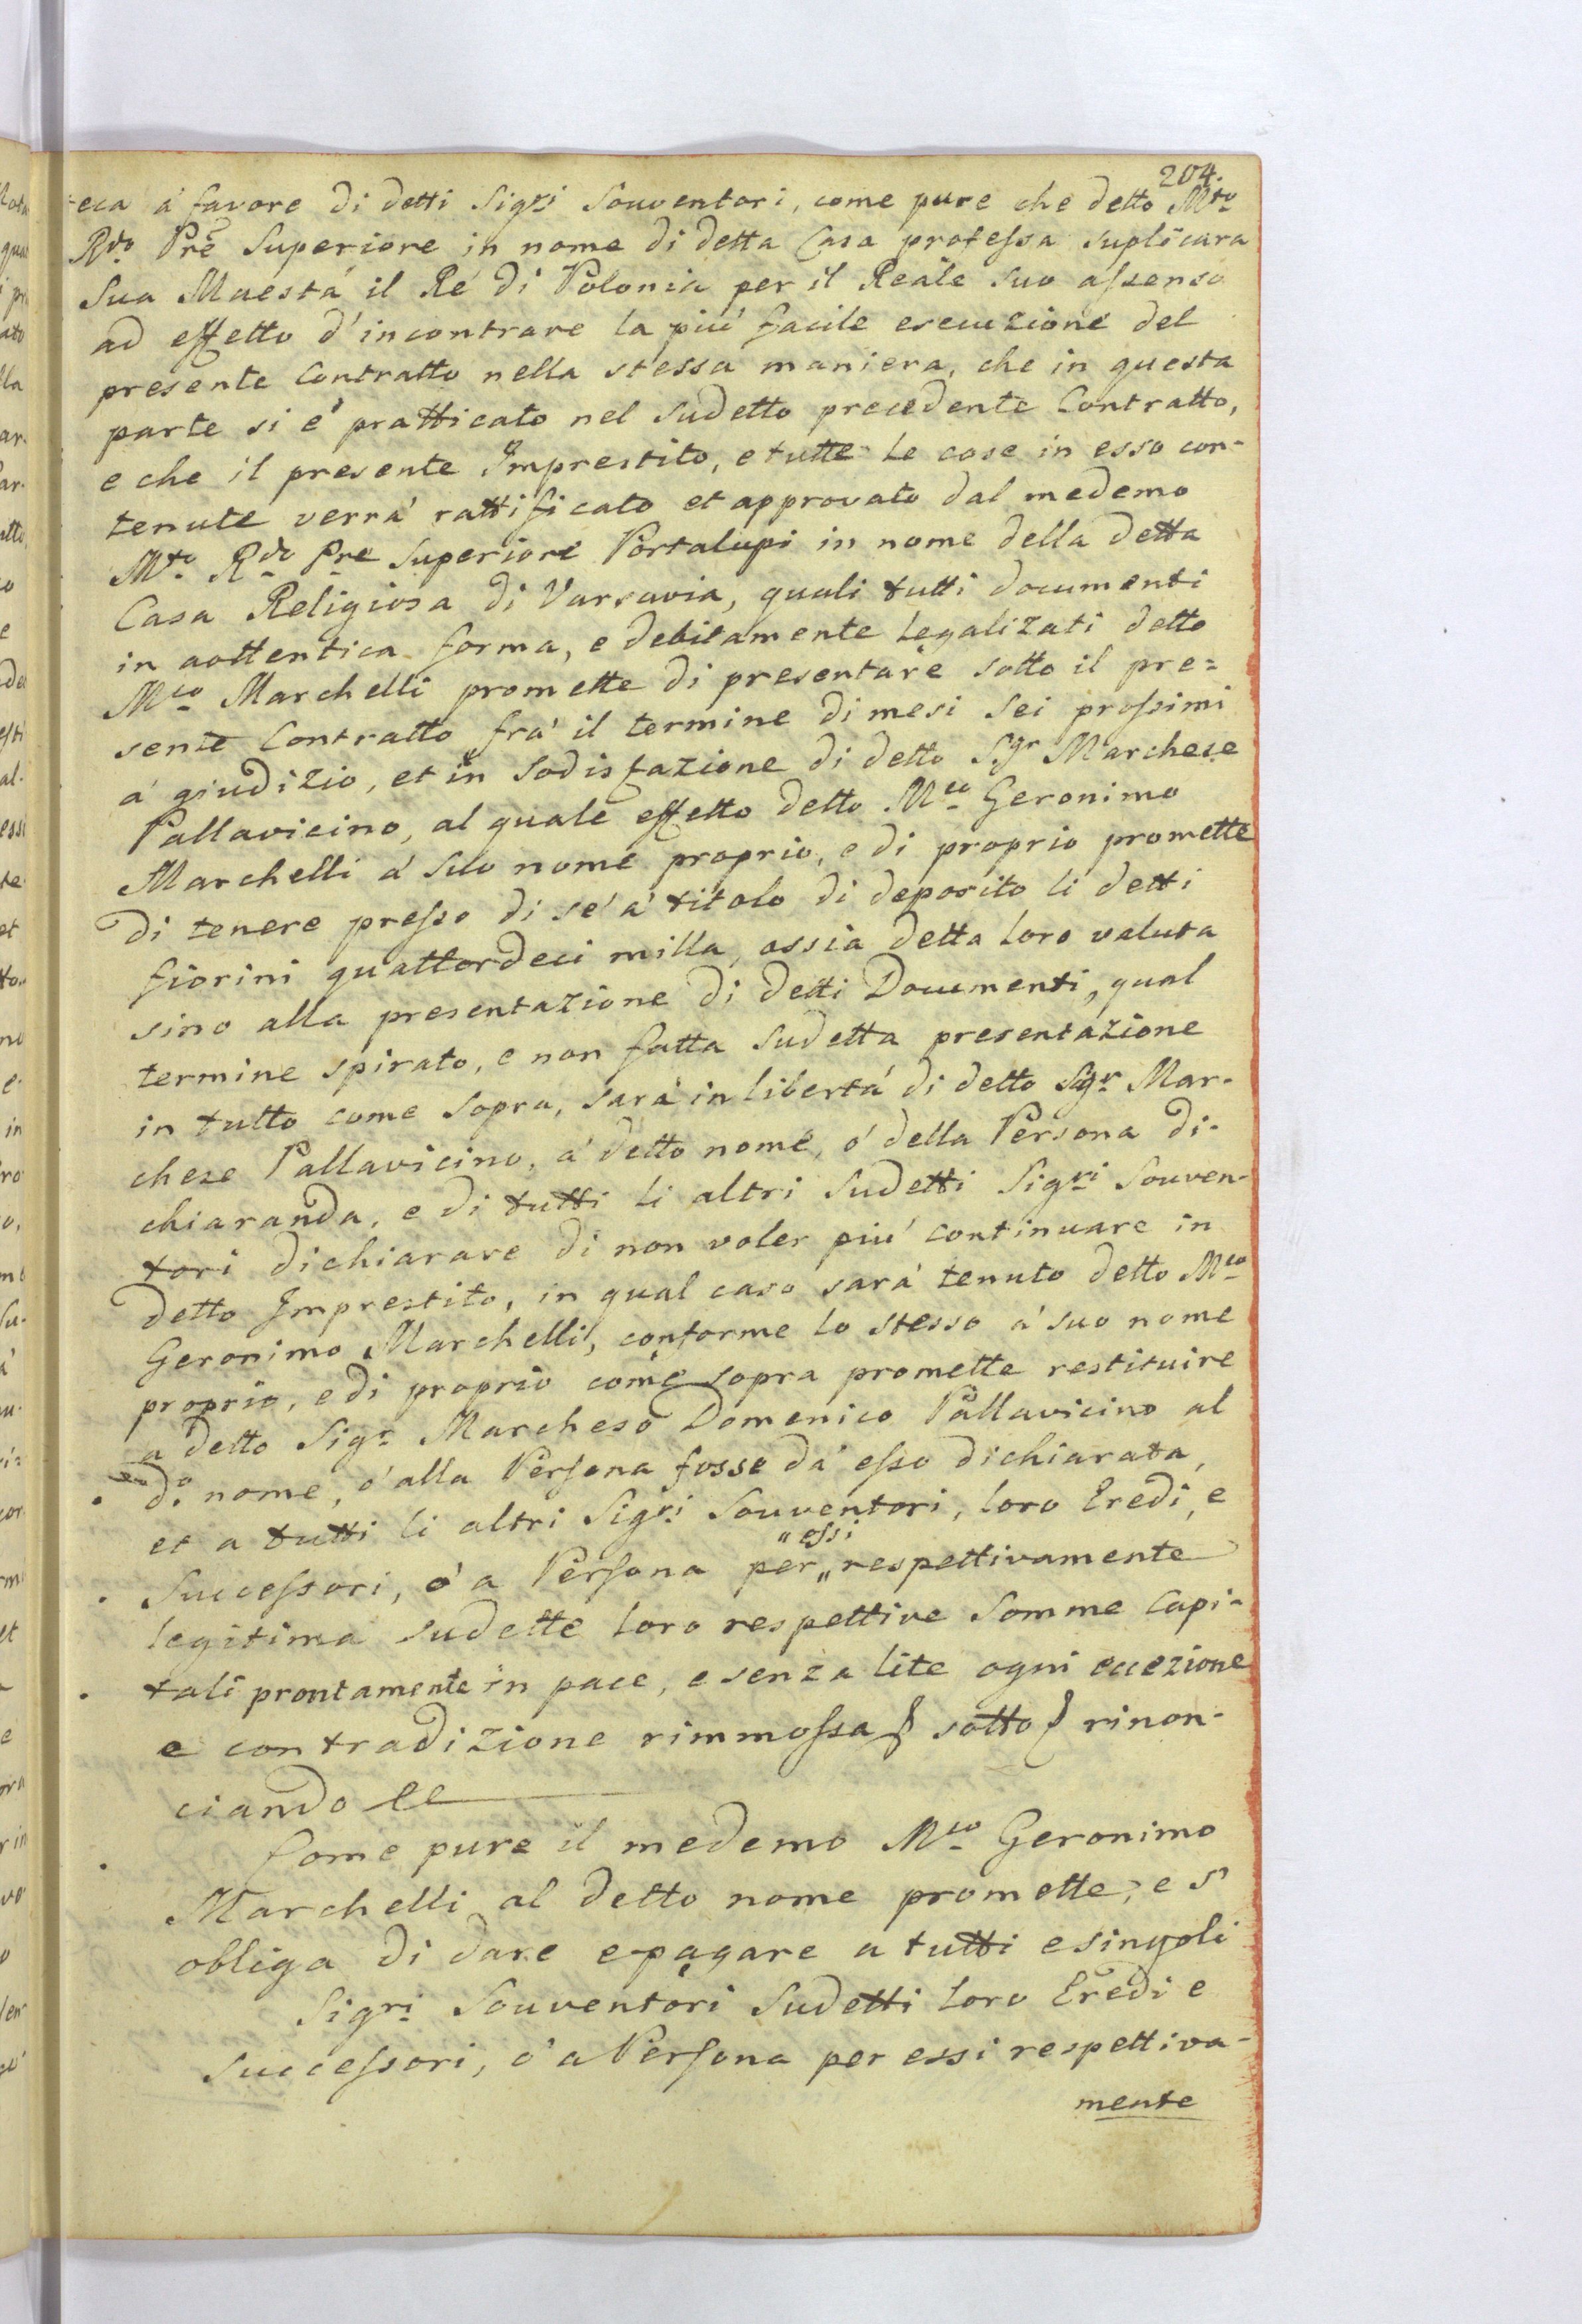 204.
teca á favore di detti Sigri Souventori, come pure che detto Mto
Rdo Pre Superiore in nome di detta Casa professa suplicara
Sua Maestá il Ré di Polonia per il Reale suo assenso
ad effetto d'incontrare la piú facile esecuzione del
presente Contratto nella stessa maniera, che in questa
parte si é pratticato nel sudetto precedente Contratto,
e che il presente Imprestito, e tutte le cose in esso con-
tenute verrá rattificato et approvato dal medemo
Mto Rdo Pre Superiore Portalupi in nome della detta
Casa Religiosa di Varsavia, quali tutti documenti
in aottentica forma, e debitamente legalizati detto
Mco Marchelli promette di presentare sotto il pre=
sente Contratto frá il termine di mesi sei prossimi
á giudizio, et in sodisfazione di detto Sgr Marchese
Pallavicino, al quale effetto detto Mco Geronimo
Marchelli á suo nome proprio, e di proprio promette
di tenere presso di sé á titolo di deposito li detti
fiorini quattordeci milla, ossia detta loro valuta
sino alla presentazione di detti Documenti, qual
termine spirato, e non fatta sudetta presentazione
in tutto come sopra, sará in libertá di detto Sigr Mar-
chese Pallavicino, á detto nome, ó della Persona di-
chiaranda, e di tutti li altri sudetti Sigri Souven-
tori dichiarare di non voler piú continuare in
detto Imprestito, in qual caso sará tenuto detto Mco
Geronimo Marchelli, conforme lo stesso á suo nome
proprio, e di proprio come sopra promette restituire
a detto Sigr Marchese Domenico Pallavicino al
do nome, ó alla Persona fosse dá esso dichiarata,
et a tutti li altri Sigri Souventori, loro Eredi, e
"essi
Successori, ó a Persona per " respettivamente
legitima sudette loro respettive somme Capi-
tali prontamente in pace, e senza lite ogni eccezione
e contradizione rimmossa sotto rinon-
ciando
Come pure il medemo Mco Geronimo
Marchelli al detto nome promette, e s'
obliga di dare e pagare a tutti e singoli
Sigri Souventori sudetti loro Eredi e
Successori, ó a Persona per essi respettiva-
mente